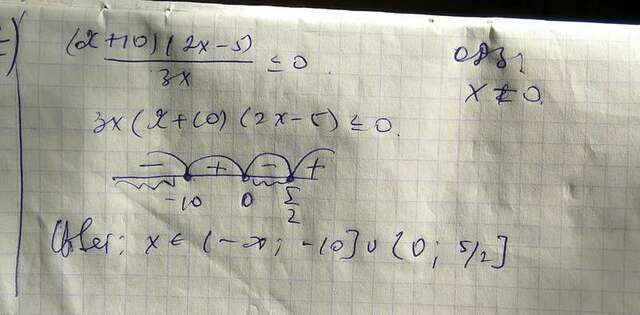 (x+10)(2x-5) / 3x ≤ 0. ОДЗ:
x ≠ 0.
3x(x+10)(2x-5) ≤ 0.
- + - +
-10 0 5/2
Ответ: x ∈ (-∞; -10] ∪ (0; 5/2]